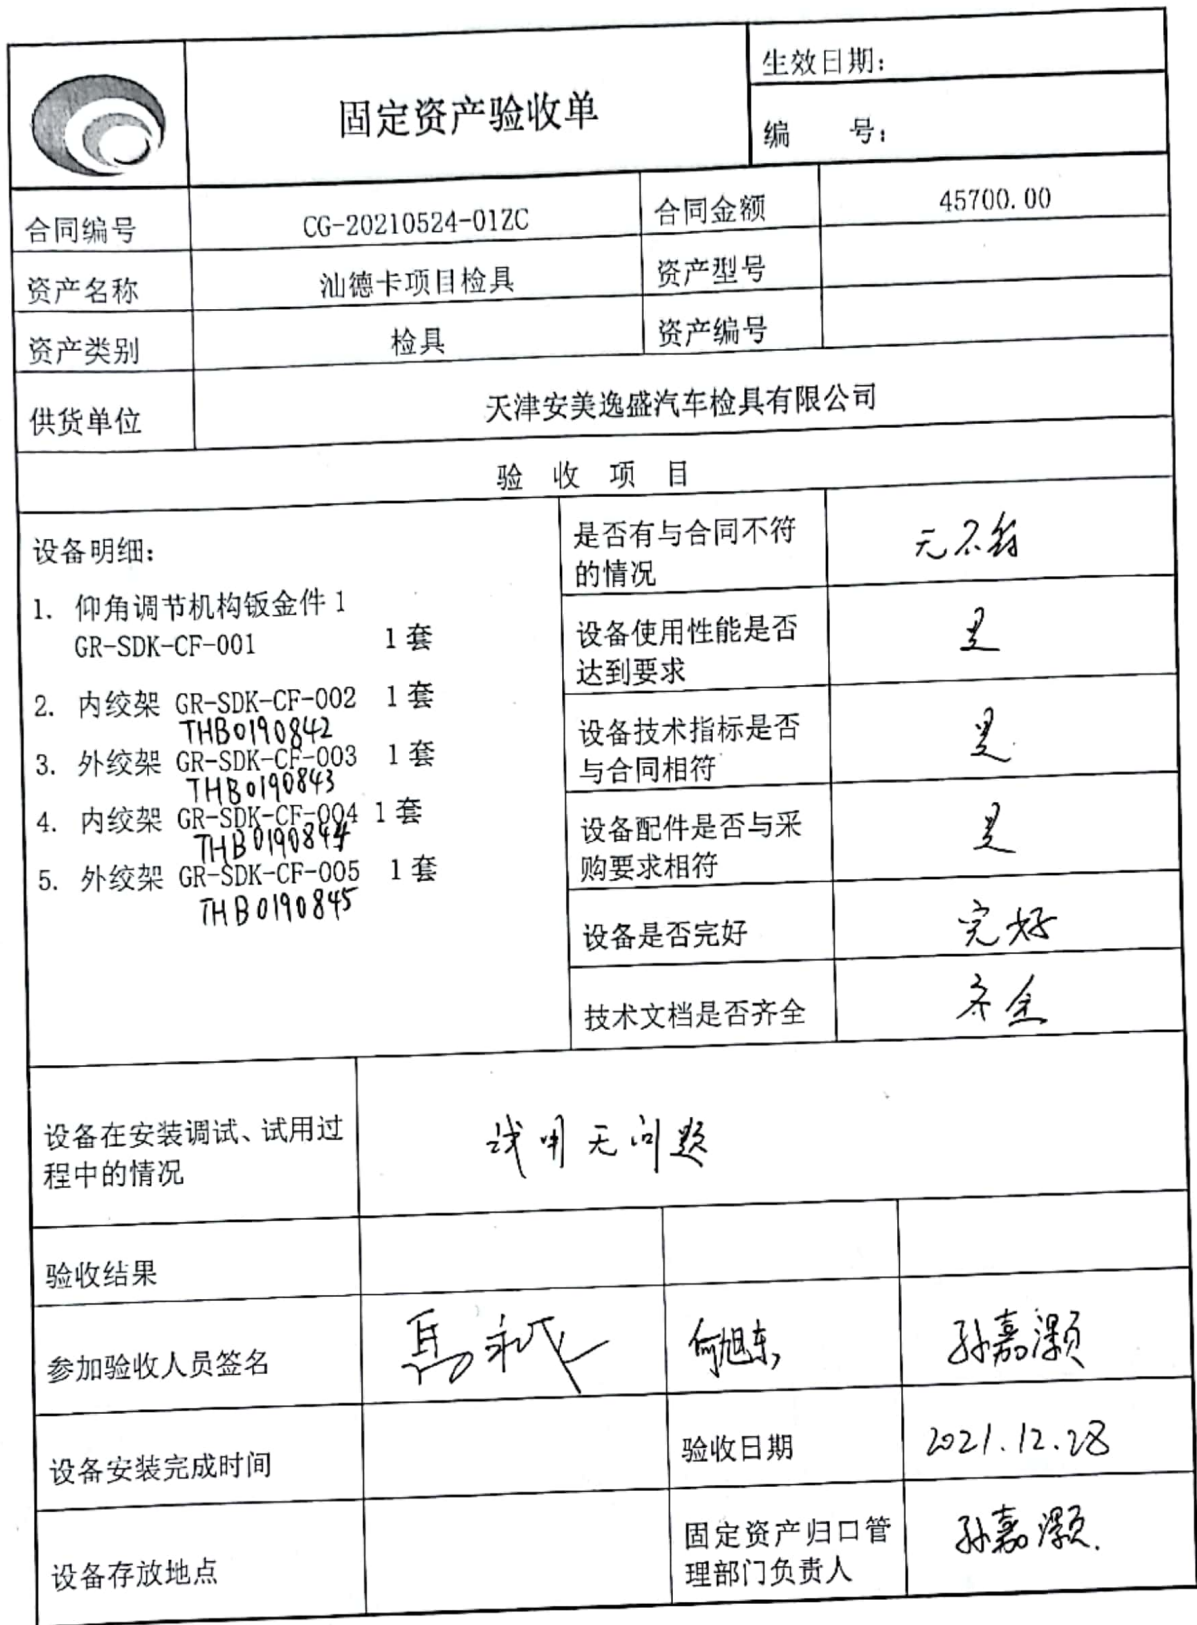 固定资产验收单
生效日期：
编 号：
合同编号 CG-20210524-01ZC 合同金额 45700.00
资产名称 汕德卡项目检具 资产型号
资产类别 检具 资产编号
供货单位 天津安美逸盛汽车检具有限公司
验 收 项 目
设备明细：
1. 仰角调节机构钣金件1
GR-SDK-CF-001 1套
2. 内绞架 GR-SDK-CF-002 1套
THB0190842
3. 外绞架 GR-SDK-CF-003 1套
THB0190843
4. 内绞架 GR-SDK-CF-004 1套
THB0190844
5. 外绞架 GR-SDK-CF-005 1套
THB0190845
是否有与合同不符
的情况
无不符
设备使用性能是否
达到要求
是
设备技术指标是否
与合同相符
是
设备配件是否与采
购要求相符
是
设备是否完好 完好
技术文档是否齐全 齐全
设备在安装调试、试用过
程中的情况
试用无问题
验收结果
参加验收人员签名 何旭东 孙嘉灏
设备安装完成时间 验收日期 2021.12.28
设备存放地点
固定资产归口管
理部门负责人
孙嘉灏